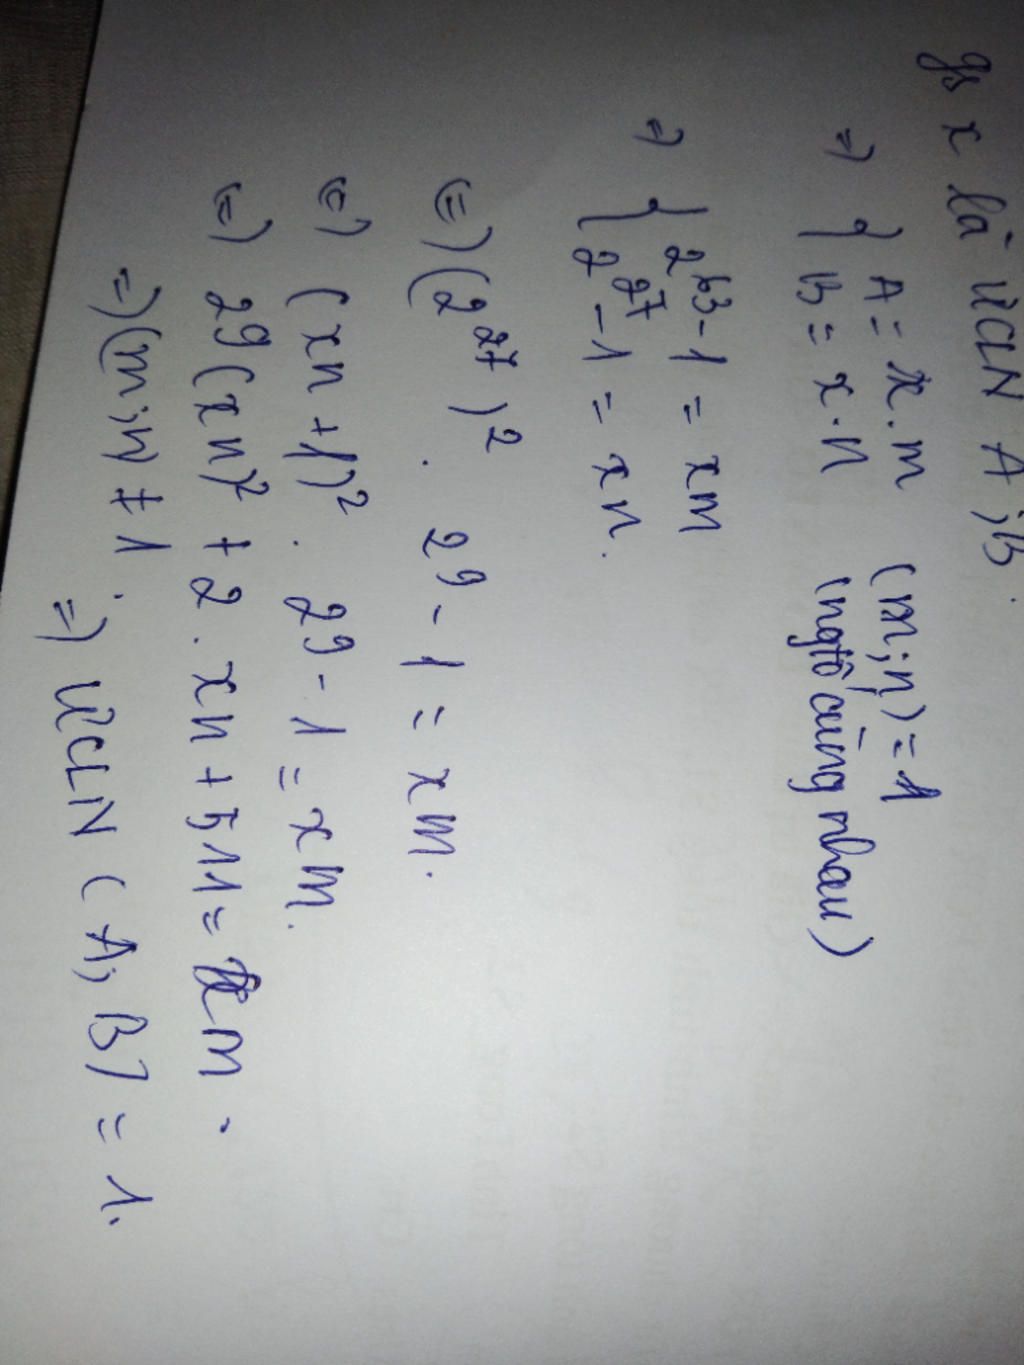 gs x là ƯCLN A ; B.
=> { A = x.m (m;n) = 1
B = x.n (ngtố cùng nhau)
=> { 2^63 - 1 = xm
2^27 - 1 = xn.
(=) (2^27)^2 . 2^9 - 1 = xm.
(=) (xn + 1)^2 . 2^9 - 1 = xm.
(=) 2^9(xn)^2 + 2 . xn + 511 = xm.
=> (m;n) ≠ 1. => ƯCLN (A; B) = 1.